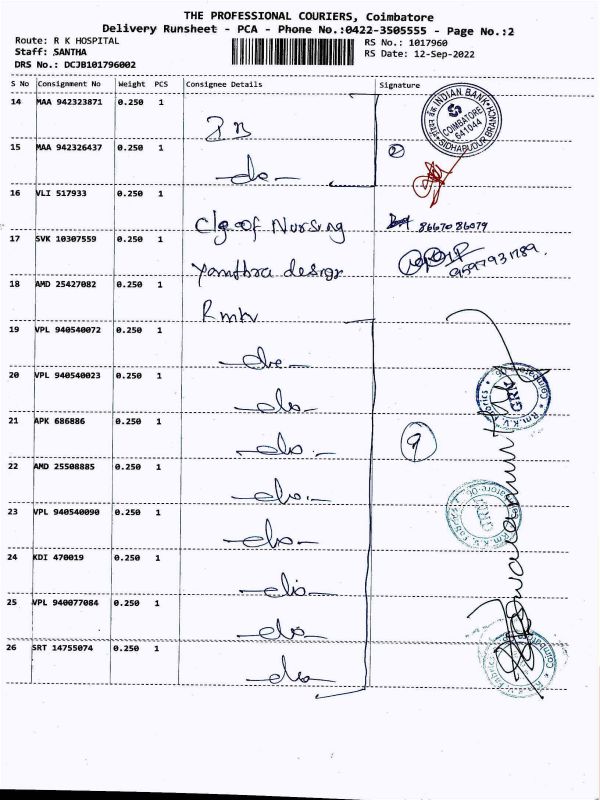 THE PROFESSIONAL COURIERS, Coimbatore
Delivery Runsheet - PCA - Phone No.:0422-3505555 - Page No.:2
Route: R K HOSPITAL
RS No.: 1017960
Staff: SANTHA
RS Date: 12-Sep-2022
DRS No.: DCJB101796002
S No Consignment No Weight PCS Consignee Details Signature
14 MAA 942323871 0.250 1
INDIAN BANK
COIMBATORE
641044
SIDHAPUDUR BRANCH
15 MAA 942326437 0.250 1 -do- 2
16 VLI 517933 0.250 1 Clg of Nursing 8667086079
17 SVK 10307559 0.250 1 design
18 AMD 25427082 0.250 1 Rmkv
19 VPL 940540072 0.250 1 -do-
20 VPL 940540023 0.250 1 -do-
21 APK 686886 0.250 1 -do- 9
22 AMD 25508885 0.250 1 -do-
23 VPL 940540090 0.250 1 -do-
24 KDI 470019 0.250 1 -do-
25 VPL 940077084 0.250 1 -do-
26 SRT 14755074 0.250 1 -do-